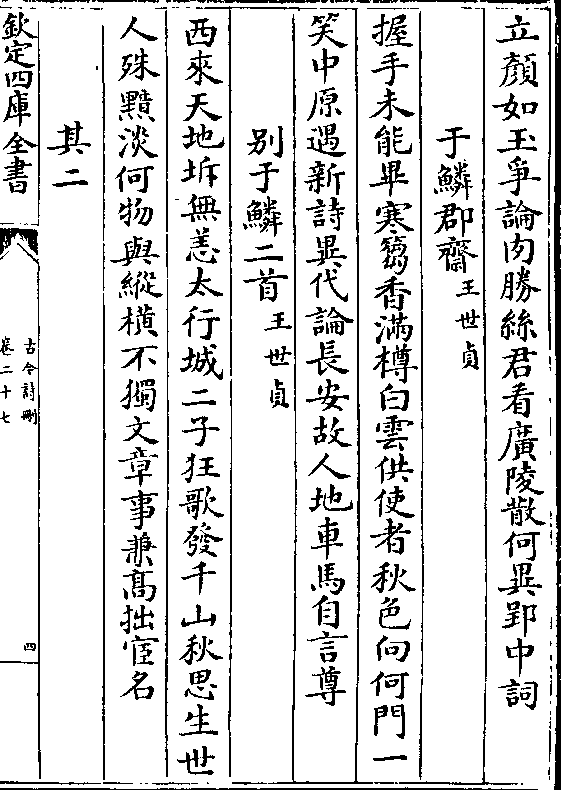 立顔如玉爭論肉勝絲君看廣陵散何異郢中詞
于鱗郡齋王世貞
握手未能畢寒篘香滿樽白雲供使者秋色向何門一
笑中原遇新詩異代論長安故人地車馬自言尊
别于鱗二首王世貞
西來天地坼無恙太行城二子狂歌發千山秋思生世
人殊黯淡何物與縱横不獨文章事兼髙拙宦名
其二
欽定四庫全書
古今詩刪
卷二十七
四